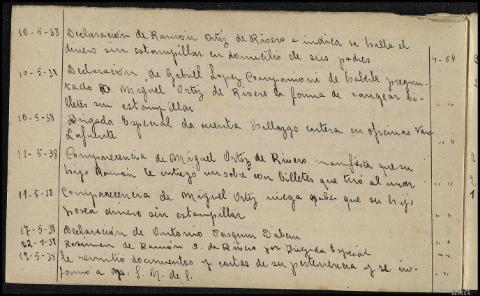 10-5-38 Declaración de Ramón Ortiz de Rivero e indica se halla el
dinero sin estampillar en domicilio de sus padres 4-64
10-5-38 Declaración de Gabriel Lopez de haberle pregun-
tado D. Miguel Ortiz de Rivero la forma de cangear bi-
lletes sin estampillar " "
10-5-38 Brigada Especial da cuenta hallazgo cartera en oficinas Van
Lafuente " "
11-5-38 Comparecencia de Miguel Ortiz de Rivero manifiesta que su
hijo Ramón le entregó un sobre con billetes que tiró al mar " "
11-5-38 Comparecencia de Miguel Ortiz niega saber que su hijo
posea dinero sin estampillar " "
17-5-38 Declaración de Antonio Joaquin " "
22-4-38 Resumen de Ramón O. de Rivero por Brigada Especial " "
19-5-38 Se remitió documentos y cartas de su pertenencia y se in-
formó a S. M. de